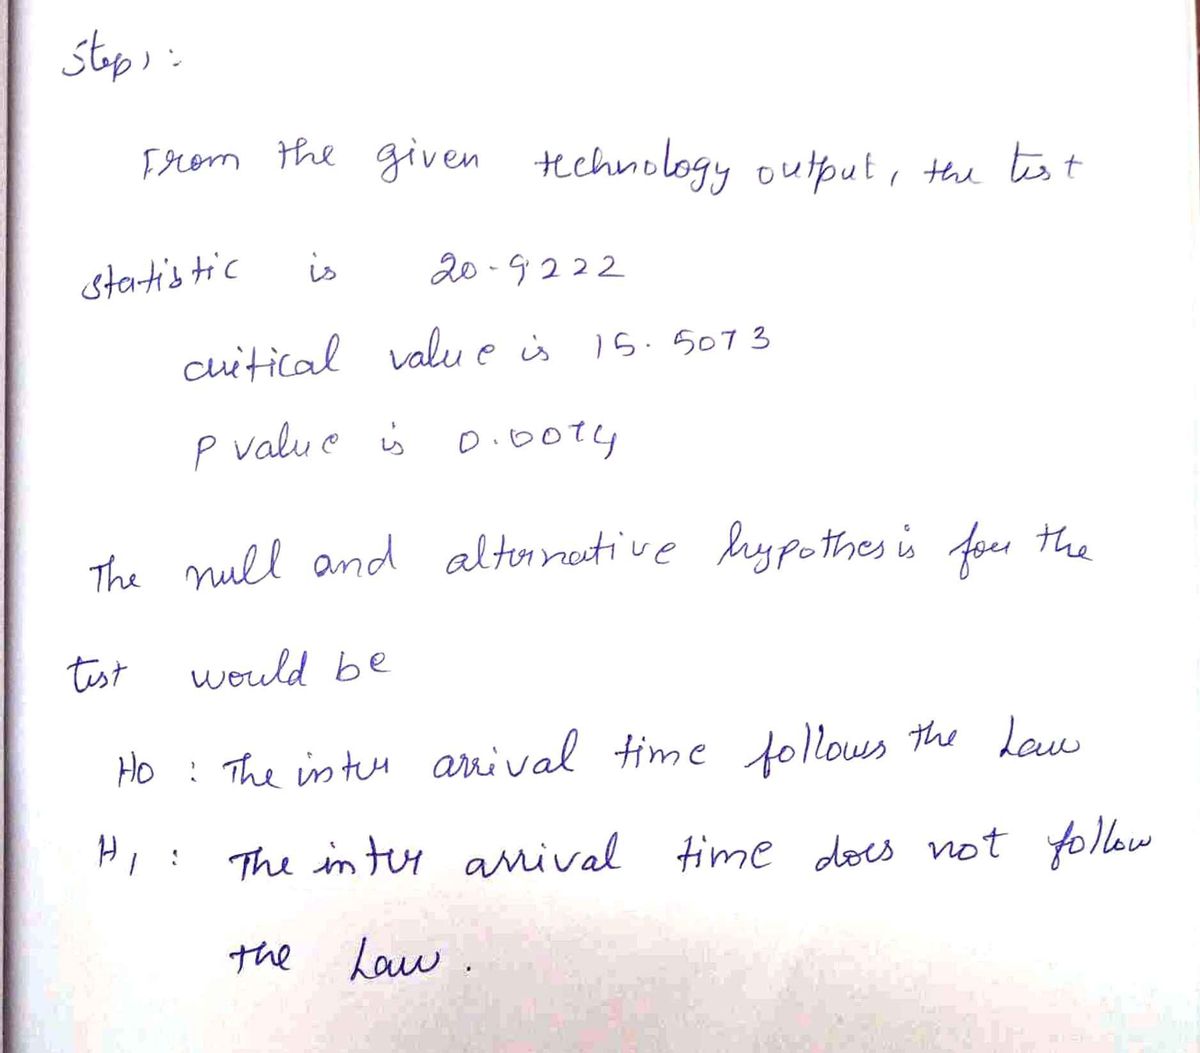 Step 1 :
From the given technology output, the test
statistic is 20.9222
critical value is 15.5073
P value is 0.0074
The null and alternative hypothesis for the
test would be
H0 : The inter arrival time follows the Law
H1 : The inter arrival time does not follow
the Law .